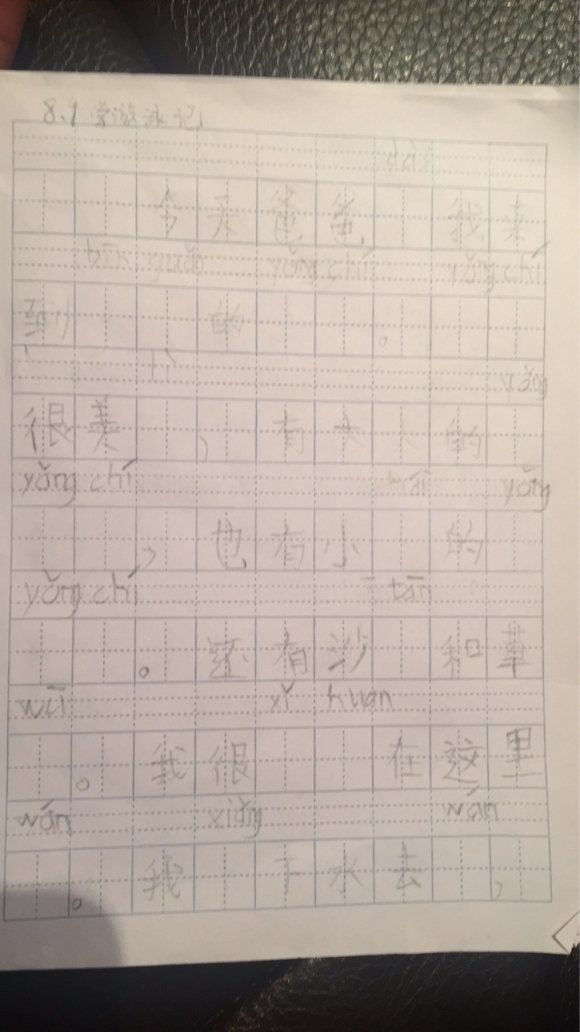 8.1 学游泳记
dài
今天爸爸 我来
bīn guǎn yǒng chí yǒng chí
到 的 。
很美 ，有大大的
yǒng chí yǒng
，也有小 的
yǒng chí tān
。还有沙 和草
wū xǐ huān
。我很 在这里
wán xiǎng wán
。我 下水去 ，